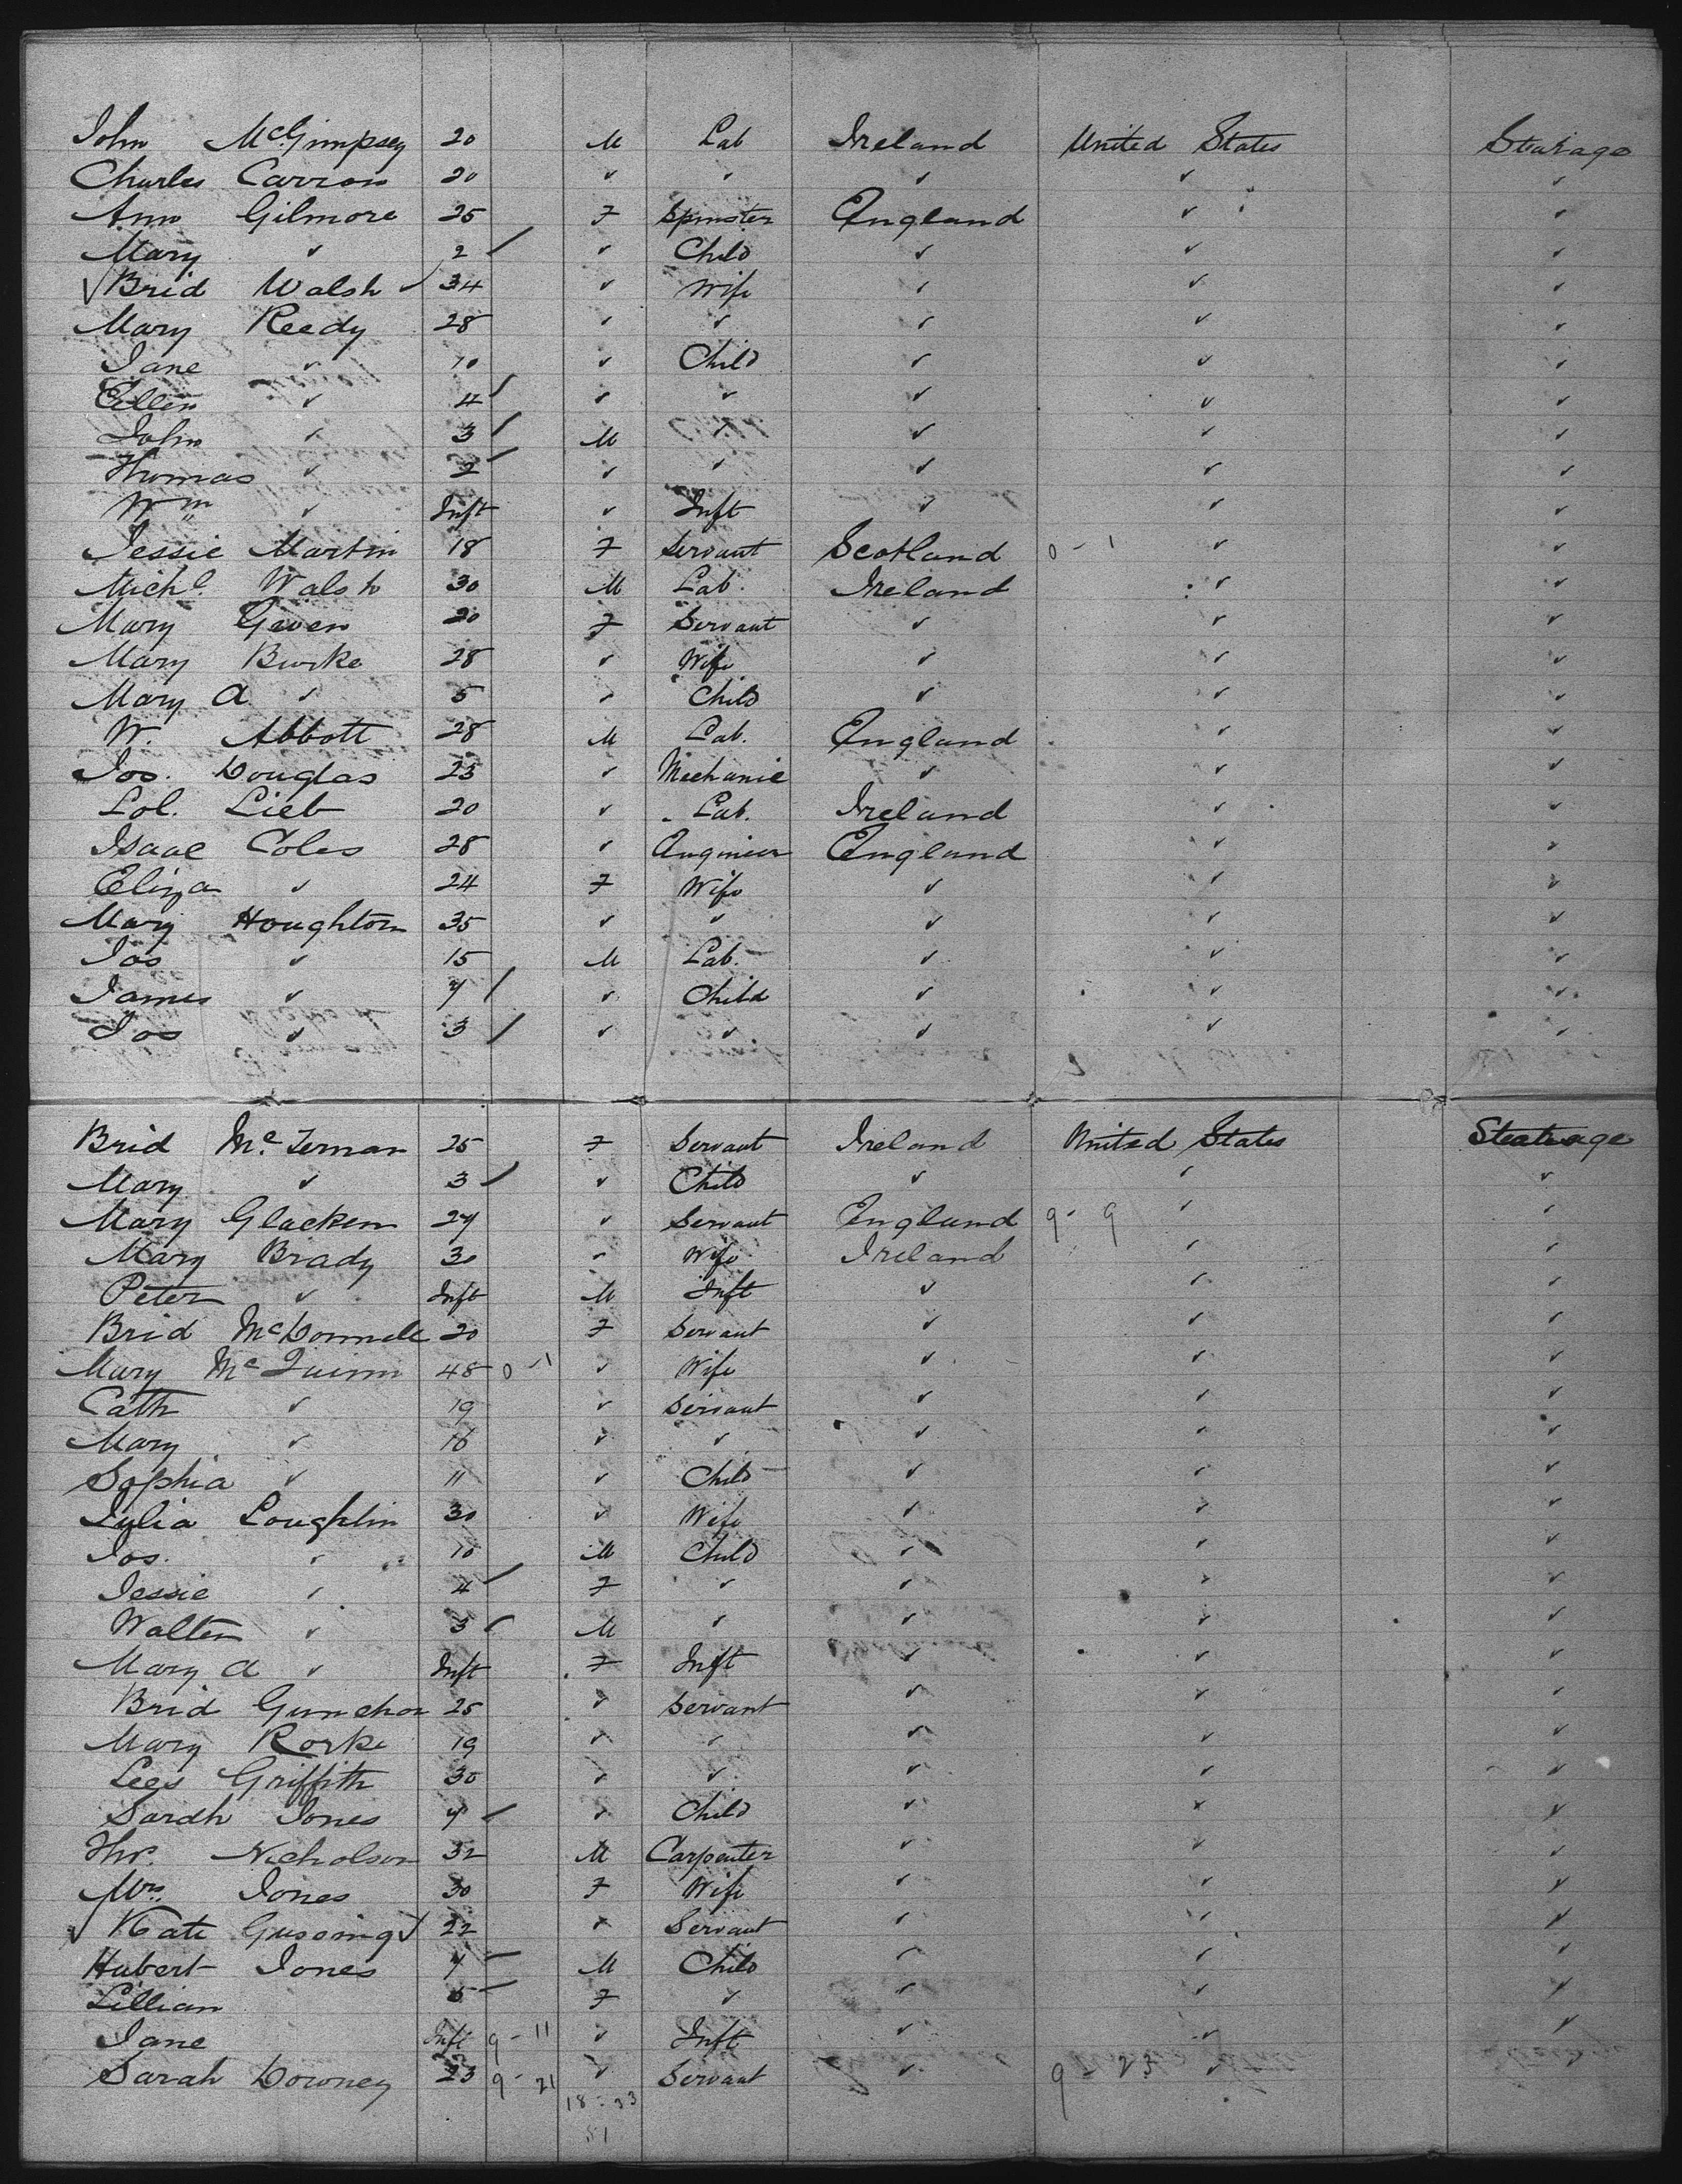 John McGimpsey 20 M Lab Ireland United States Steerage
Charles Carron 20 " " " " "
Ann Gilmore 25 F Spinster England " "
Mary " 2 / " Child " " "
√ Brid Walsh √ 34 " Wife " " "
Mary Reedy 28 " " " " "
Jane " 10 " Child " " "
Ellen " 4 / " " " " "
John " 3 / M " " " "
Thomas " 2 / " " " " "
Wm " Inft " Inft " " "
Jessie Martin 18 F Servant Scotland 0 - 1 " "
Michl. Walsh 30 M Lab. Ireland " "
Mary Geven 20 F Servant " " "
Mary Burke 28 " Wife " " "
Mary A " 5 " Child " " "
W. Abbott 28 M Lab. England " "
Jos. Douglas 23 " Mechanic " " "
Lol. Lieb 20 " Lab. Ireland " "
Isaac Coles 28 " Engineer England " "
Eliza " 24 F Wife " " "
Mary Houghton 35 " " " " "
Jos " 15 M Lab. " " "
James " 7 / " Child " " "
Jos " 3 / " " " " "
Brid McTernan 25 F Servant Ireland United States Steerage
Mary " 3 / " Child " " "
Mary Glacken 24 " Servant England 9 - 9 " "
Mary Brady 30 " Wife Ireland " "
Peter " Inft M Inft " " "
Brid McDonnell 20 F Servant " " "
Mary McQuinn 48 0 - 1 " Wife " " "
Cath " 19 " Servant " " "
Mary " 16 " " " " "
Sophia " 11 " Child " " "
Julia Loughlin 30 " Wife " " "
Jos. " 10 M Child " " "
Jessie " 4 / F " " " "
Walter " 3 / M " " " "
Mary A " Inft F Inft " " "
Brid 25 " Servant " " "
Mary Rorke 19 " " " " "
Lees Griffith 30 " " " " "
Sarah Jones 7 / " Child " " "
Thos. Nicholson 32 M Carpenter " " "
Mrs. Jones 30 F Wife " " "
√ Kate √ 22 " Servant " " "
Hubert Jones 7 / M Child " " "
Lillian 5 / F " " " "
Jane Inft 9 - 11 " Inft " " "
Sarah Downey 23 9 - 21 " Servant " 9 - 23 " "
18 - 33
51